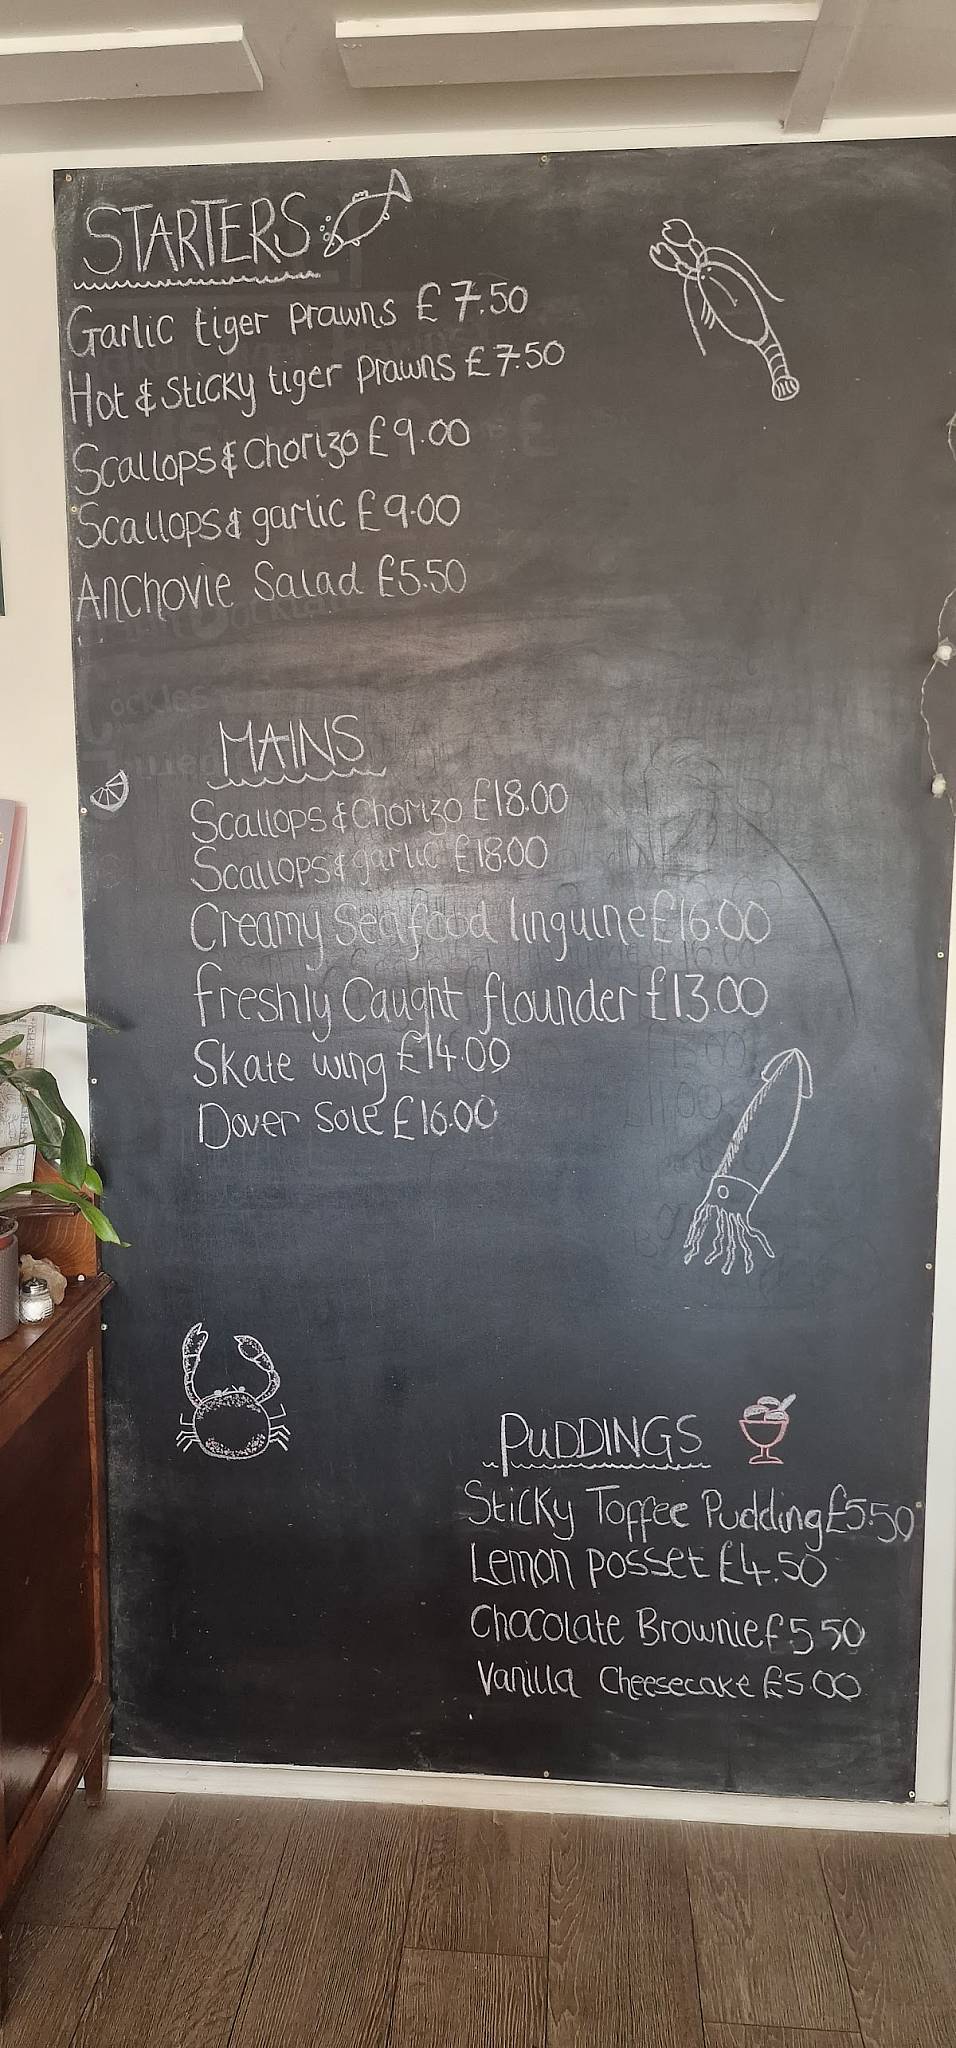 STARTERS
Garlic tiger Prawns £7.50
Hot & Sticky tiger Prawns £7.50
Scallops & Chorizo £9.00
Scallops & garlic £9.00
Anchovie Salad £5.50
MAINS
Scallops & Chorizo £18.00
Scallops & garlic £18.00
Creamy Seafood linguine £16.00
freshly Caught flounder £13.00
Skate wing £14.00
Dover Sole £16.00
PUDDINGS
Sticky Toffee Pudding £5.50
Lemon Posset £4.50
Chocolate Brownie £5.50
Vanilla Cheesecake £5.00